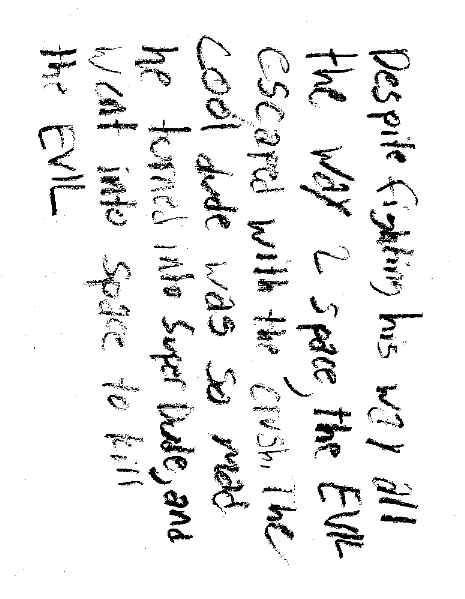 Despite fighting his way all
the way 2 space, the EVIL
escaped with the crush. The
cool dude was so mad
he turned into Super Dude, and
went into space to kill
the EVIL